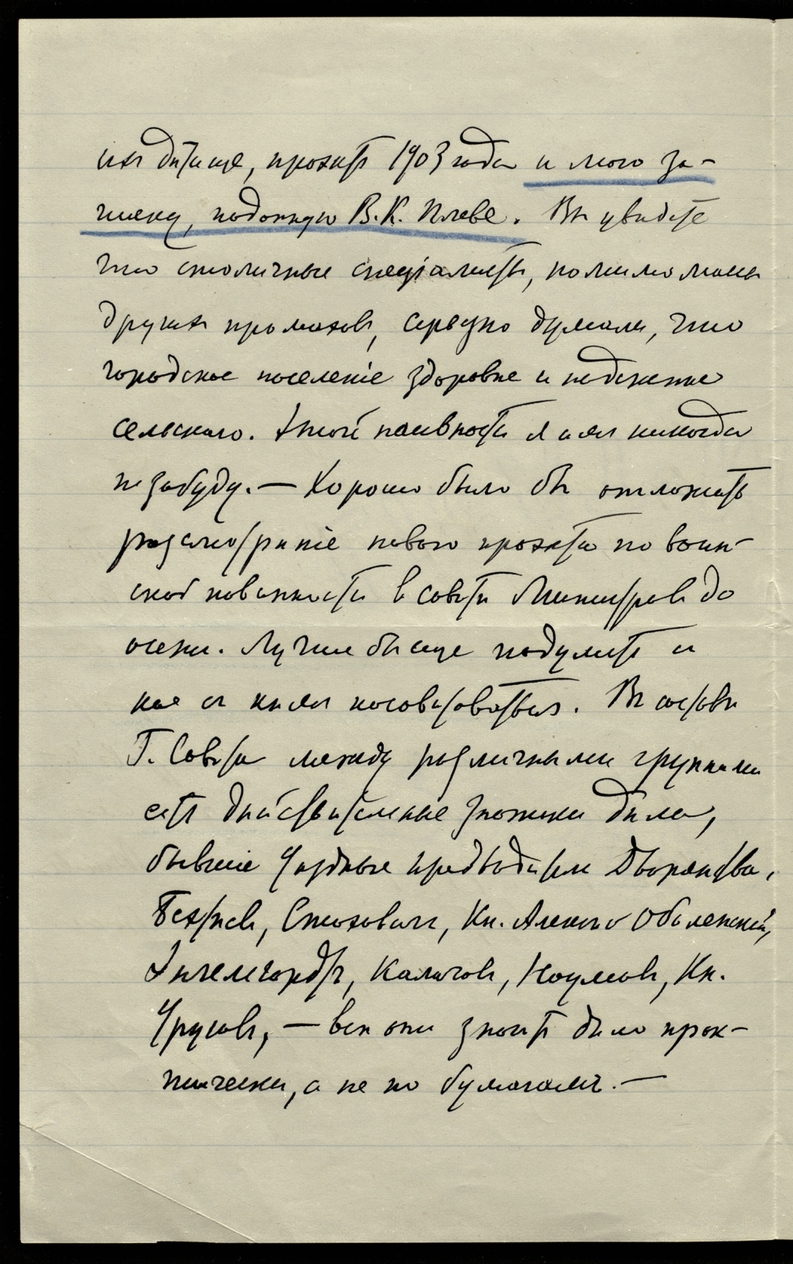 ихъ дѣтище, проэктъ 1903 года и мою за-
писку, поданную В.К. Плеве. Вы увидите
что столичные спеціалисты, помимо массы
другихъ промаховъ, серьезно думали, что
городское населеніе здоровѣе и
сельскаго. Этой наивности я имъ никогда
не забуду. — Хорошо было бы отложить
разсмотрѣніе новаго проэкта по воин-
ской повинности въ совѣтѣ Министровъ до
осени. Лучше бы еще подумать и
кое съ кѣмъ посовѣтоваться. Въ составѣ
Г. Совѣта между различными группами
есть дѣйствительные знатоки дѣла,
бывшіе Уѣздные предводители Дворянства,
Стаховичъ, Кн. Алексѣй Оболенскій,
Энгельгардтъ, Калачовъ, Наумовъ, Кн.
Урусовъ, — всѣ они знаютъ дѣло прак-
тически, а не по бумагамъ. —